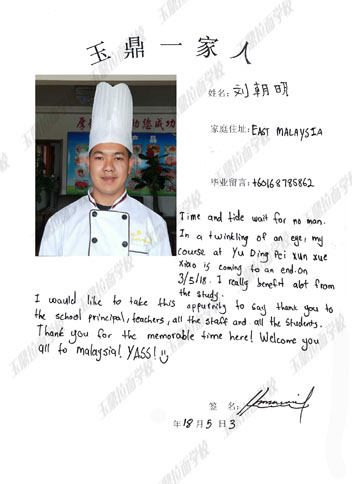 玉鼎一家人
姓名: 刘朝明
家庭住址: EAST MALAYSIA
毕业留言: +60168785862
Time and tide wait for no man.
In a twinkling of an eye, my
course at Yu Ding Pei xun xue
xiao is coming to an end on
3/5/18. I really benefit abt from
the study.
I would like to take this oppurnity to say thank you to
the school principal, teachers, all the staff and all the students.
Thank you for the memorable time here! Welcome you
all to malaysia! YASS!
签名:
年18月5日3
玉鼎拉面学校